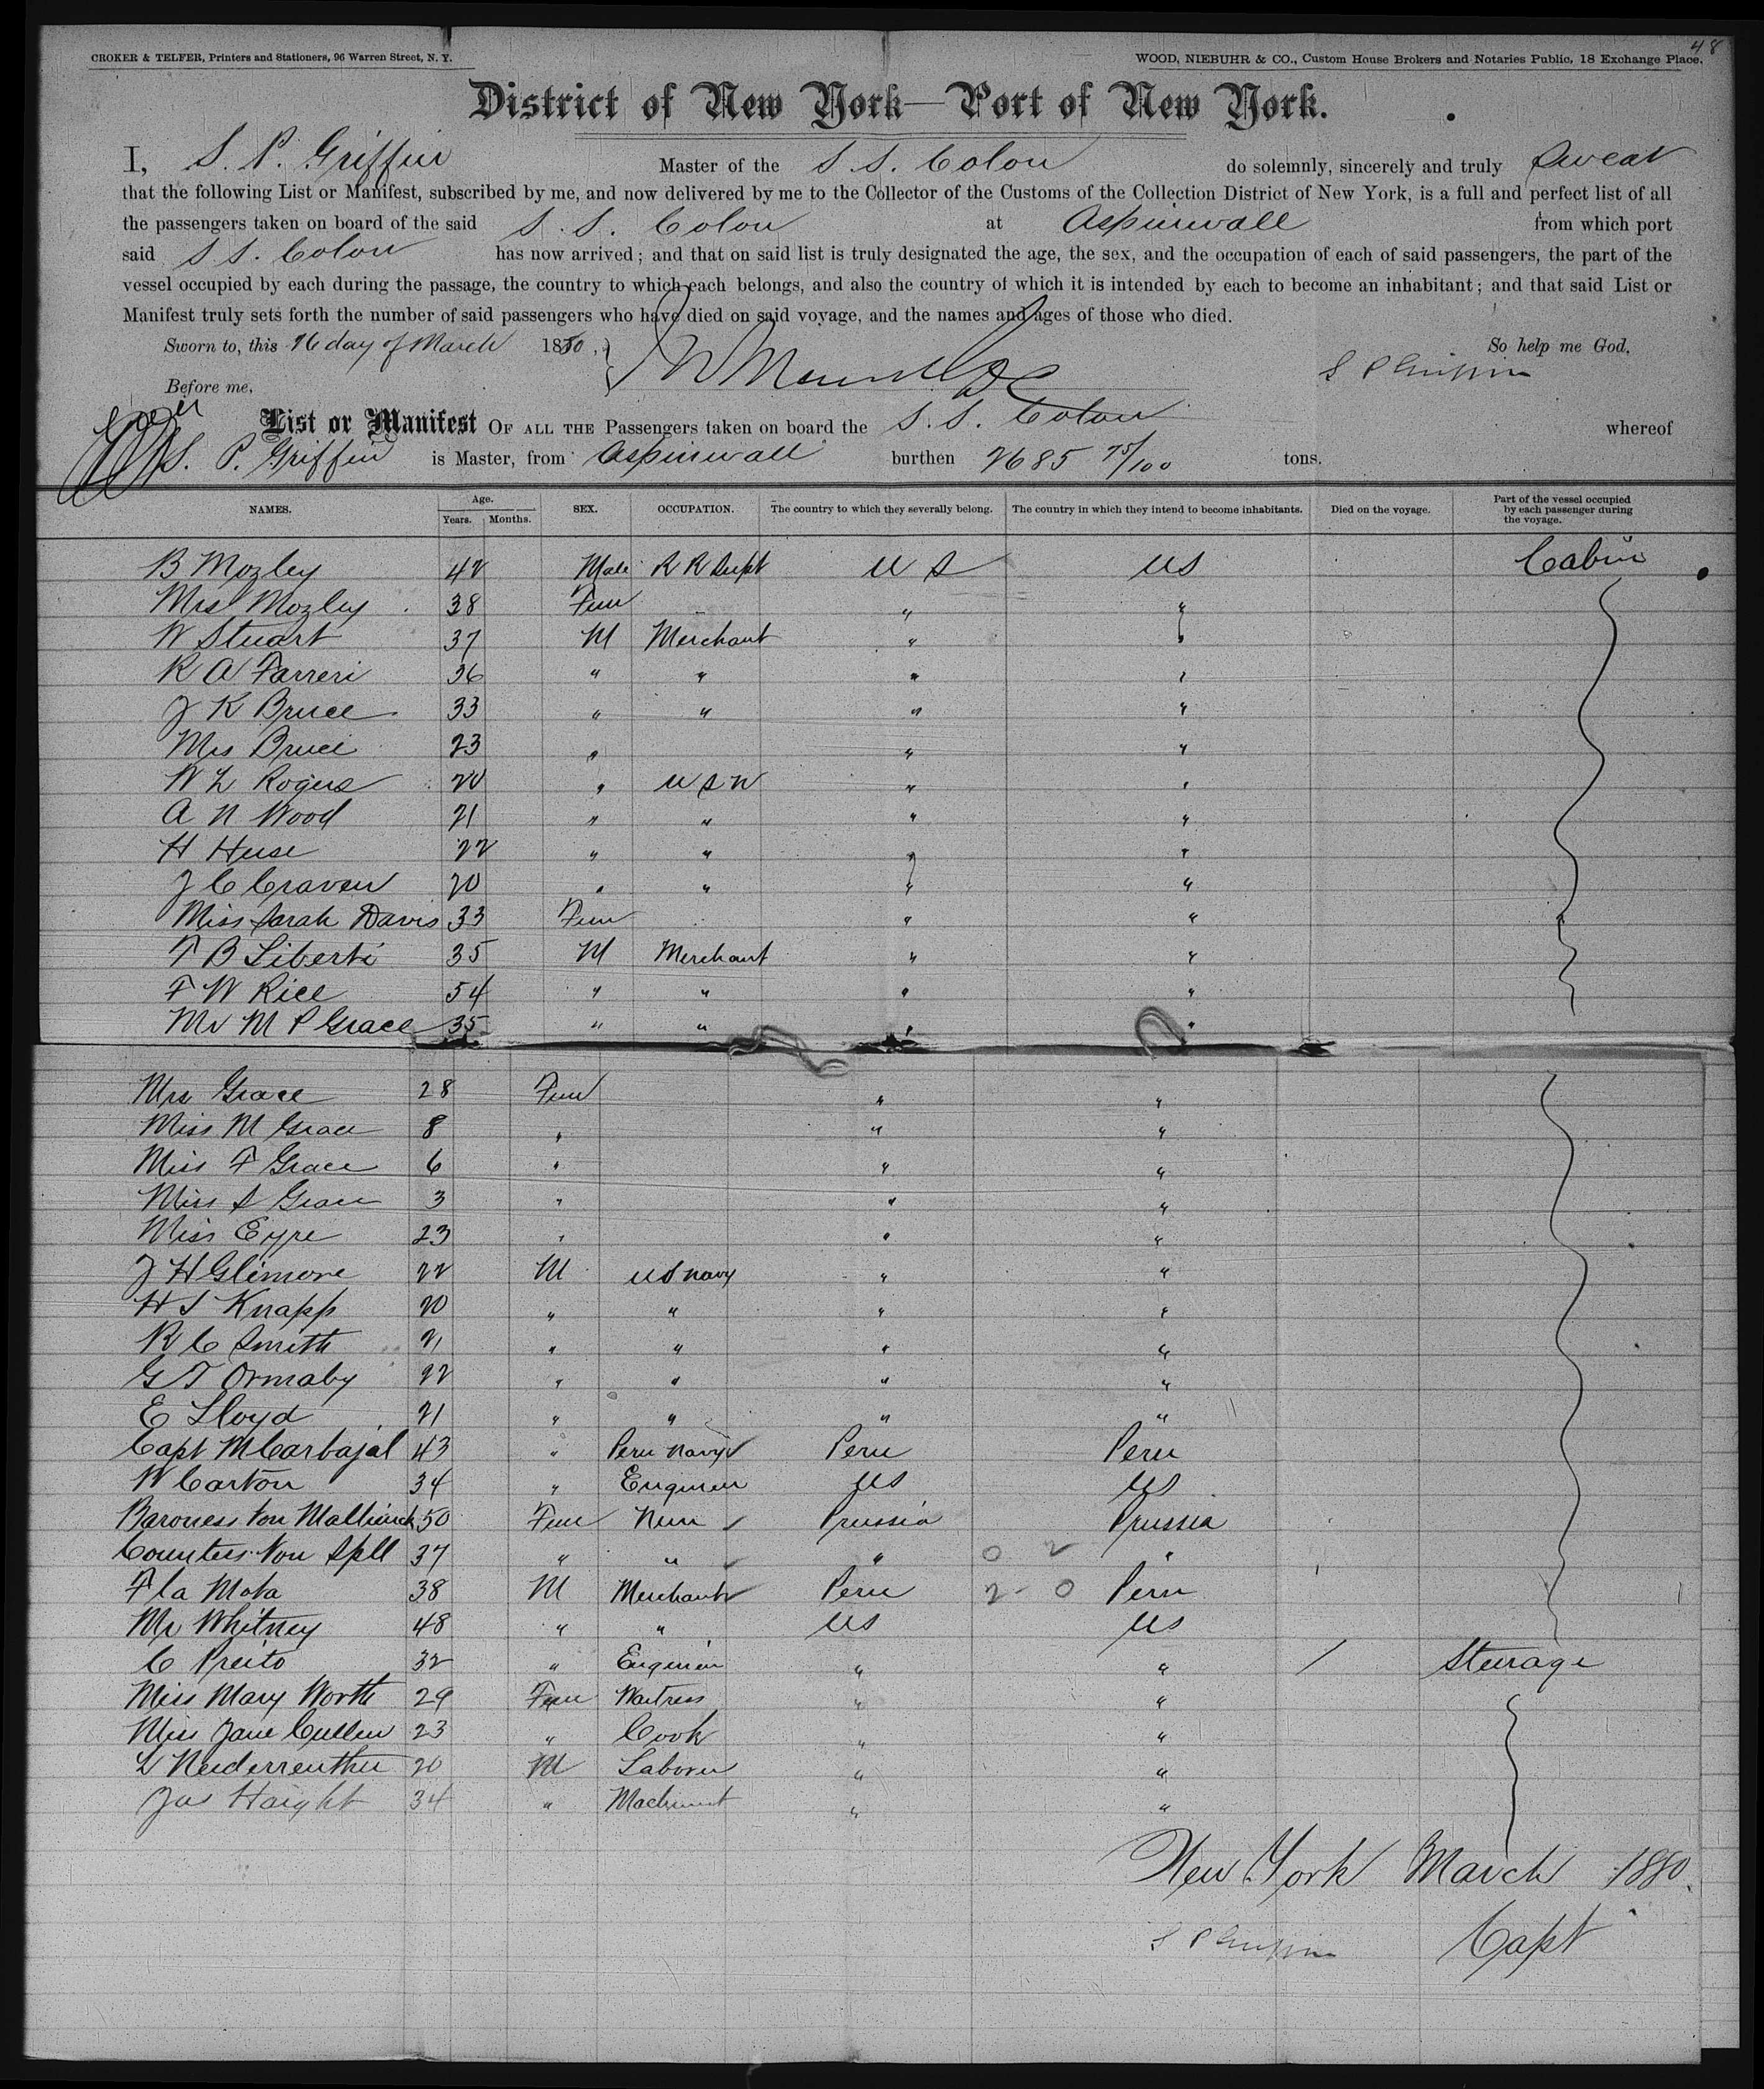 48
CROKER & TELFER, Printers and Stationers, 96 Warren Street, N. Y.
WOOD, NIEBUHR & CO., Custom House Brokers and Notaries Public, 18 Exchange Place.
District of New York—Port of New York.
I, S. P. Griffin Master of the S. S. Colon do solemnly, sincerely and truly Swear
that the following List or Manifest, subscribed by me, and now delivered by me to the Collector of the Customs of the Collection District of New York, is a full and perfect list of all
the passengers taken on board of the said S. S. Colon at Aspinwall from which port
said S S. Colon has now arrived; and that on said list is truly designated the age, the sex, and the occupation of each of said passengers, the part of the
vessel occupied by each during the passage, the country to which each belongs, and also the country of which it is intended by each to become an inhabitant; and that said List or
Manifest truly sets forth the number of said passengers who have died on said voyage, and the names and ages of those who died.
Sworn to, this 26 day of March 1880, So help me God,
Before me, S P Griffin
List or Manifest OF ALL THE Passengers taken on board the S. S. Colon whereof
S. P. Griffin is Master, from Aspinwall burthen 2685 75/100 tons.
NAMES. Age. Years. Months. SEX. OCCUPATION. The country to which they severally belong. The country in which they intend to become inhabitants. Died on the voyage. Part of the vessel occupied by each passenger during the voyage.
B Mozley 42 Male R R Supt U S US Cabin
Mrs Mozley 38 Fem " "
W Stuart 37 M Merchant " "
R A Farreri 36 " " " "
J K Bruce 33 " " " "
Mrs Bruce 23 " " "
W L Rogers 20 " U S N " "
A N Wood 21 " " " "
H Huse 22 " " " "
J C Craven 20 " " " "
Miss Sarah Davis 33 Fem " "
F B Liberti 35 M Merchant " "
F W Rice 54 " " " "
Mr M P Grace 35 " " " "
Mrs Grace 28 Fem " "
Miss M Grace 8 " " "
Miss F Grace 6 " " "
Miss S Grace 3 " " "
Miss Eyre 23 " " "
J H Glimore 22 M U S Navy " "
H S Knapp 20 " " " "
R C Smith 21 " " " "
G T Ormaby 22 " " " "
E Lloyd 21 " " " "
Capt M Carbajal 43 " Peru Navy Peru Peru
W Carton 34 " Engineer US US
Baroness Von Mallinck 50 Fem Nun Prussia Prussia
Countess Von Spll 37 " " " 0 2 "
F la Mota 38 M Merchant Peru 2 - 0 Peru
Mr Whitney 48 " " US US
C Preito 32 " Engineer " " / Sturage
Miss Mary Worth 29 Fem Waitress " "
Miss Jane Cullen 23 " Cook " "
L Neiderreuther 20 M Laborer " "
Jas Haight 34 " Machinist " "
New York March 1880.
S P Griffin Capt